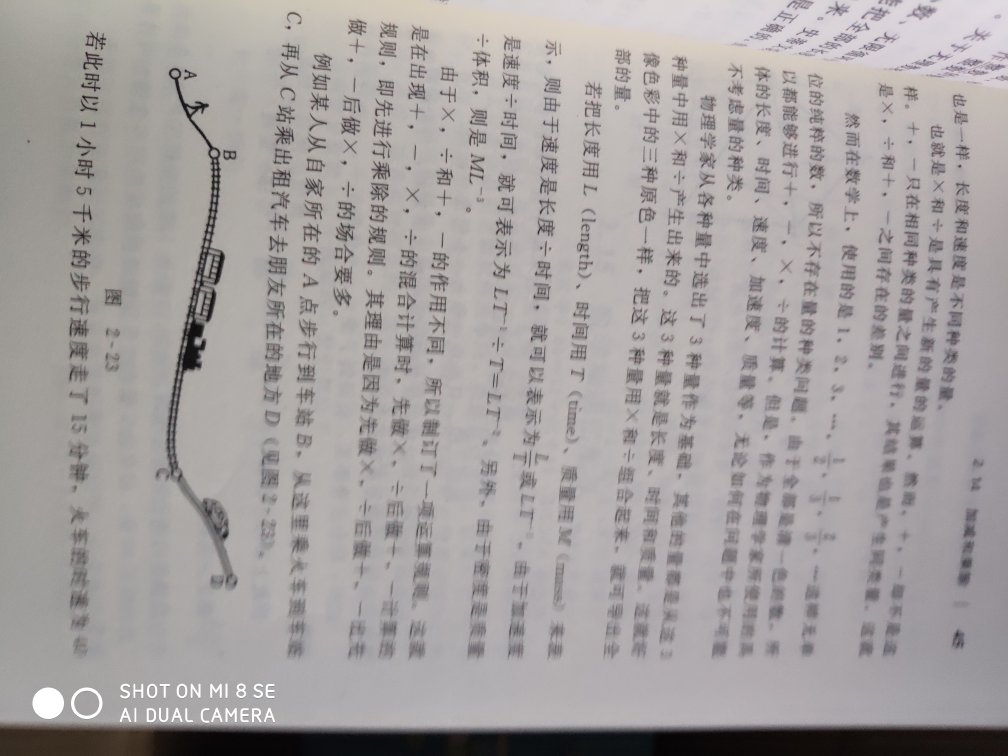 2.14 加减和乘除 | 45
也是一样，长度和速度是不同种类的量。
也就是×和÷是具有产生新的量的运算。然而，+，-却不是这
样。+，-只在相同种类的量之间进行，其结果也是产生同类量。这就
是×，÷和+，-之间存在的差别。
然而在数学上，使用的是1，2，3，…，1/2，1/3，2/3，…这样无单
位的纯粹的数，所以不存在量的种类问题。由于全都是清一色的数，所
以都能够进行+，-，×，÷的计算。但是，作为物理学家所使用的具
体的长度、时间、速度、加速度、质量等，无论如何在问题中也不可能
不考虑量的种类。
物理学家从各种量中选出了3种量作为基础，其他的量都是从这3
种量中用×和÷产生出来的。这3种量就是长度、时间和质量。这就好
像色彩中的三种原色一样，把这3种量用×和÷组合起来，就可导出全
部的量。
若把长度用L（length）、时间用T（time）、质量用M（mass）来表
示，则由于速度是长度÷时间，就可以表示为L/T或LT⁻¹。由于加速度
是速度÷时间，就可表示为LT⁻¹÷T=LT⁻²。另外，由于密度是质量
÷体积，则是ML⁻³。
由于×，÷和+，-的作用不同，所以制订了一项运算规则。这就
是在出现+，-，×，÷的混合计算时，先做×，÷后做+，-计算的
规则，即先进行乘除的规则。其理由是因为先做×，÷后做+，-比先
做+，-后做×，÷的场合要多。
例如某人从自家所在的A点步行到车站B，从这里乘火车到车站
C，再从C站乘出租汽车去朋友所在的地方D（见图2-23）。
A
B
C
D
图 2-23
若此时以1小时5千米的步行速度走了15分钟，火车的时速为40
SHOT ON MI 8 SE
AI DUAL CAMERA